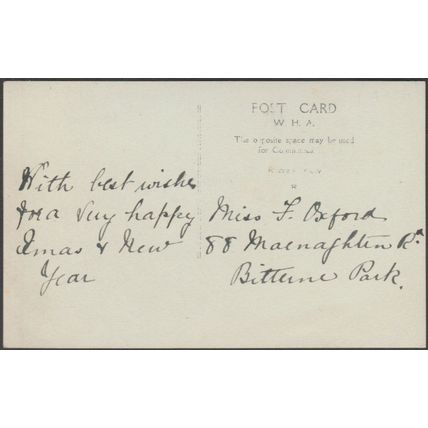 POST CARD
W. H. A.
The opposite space may be used
for
With best wishes
for a very happy
Xmas & New
Year
Miss F. Oxford
88 Macnaghten Rd
Bitterne Park.